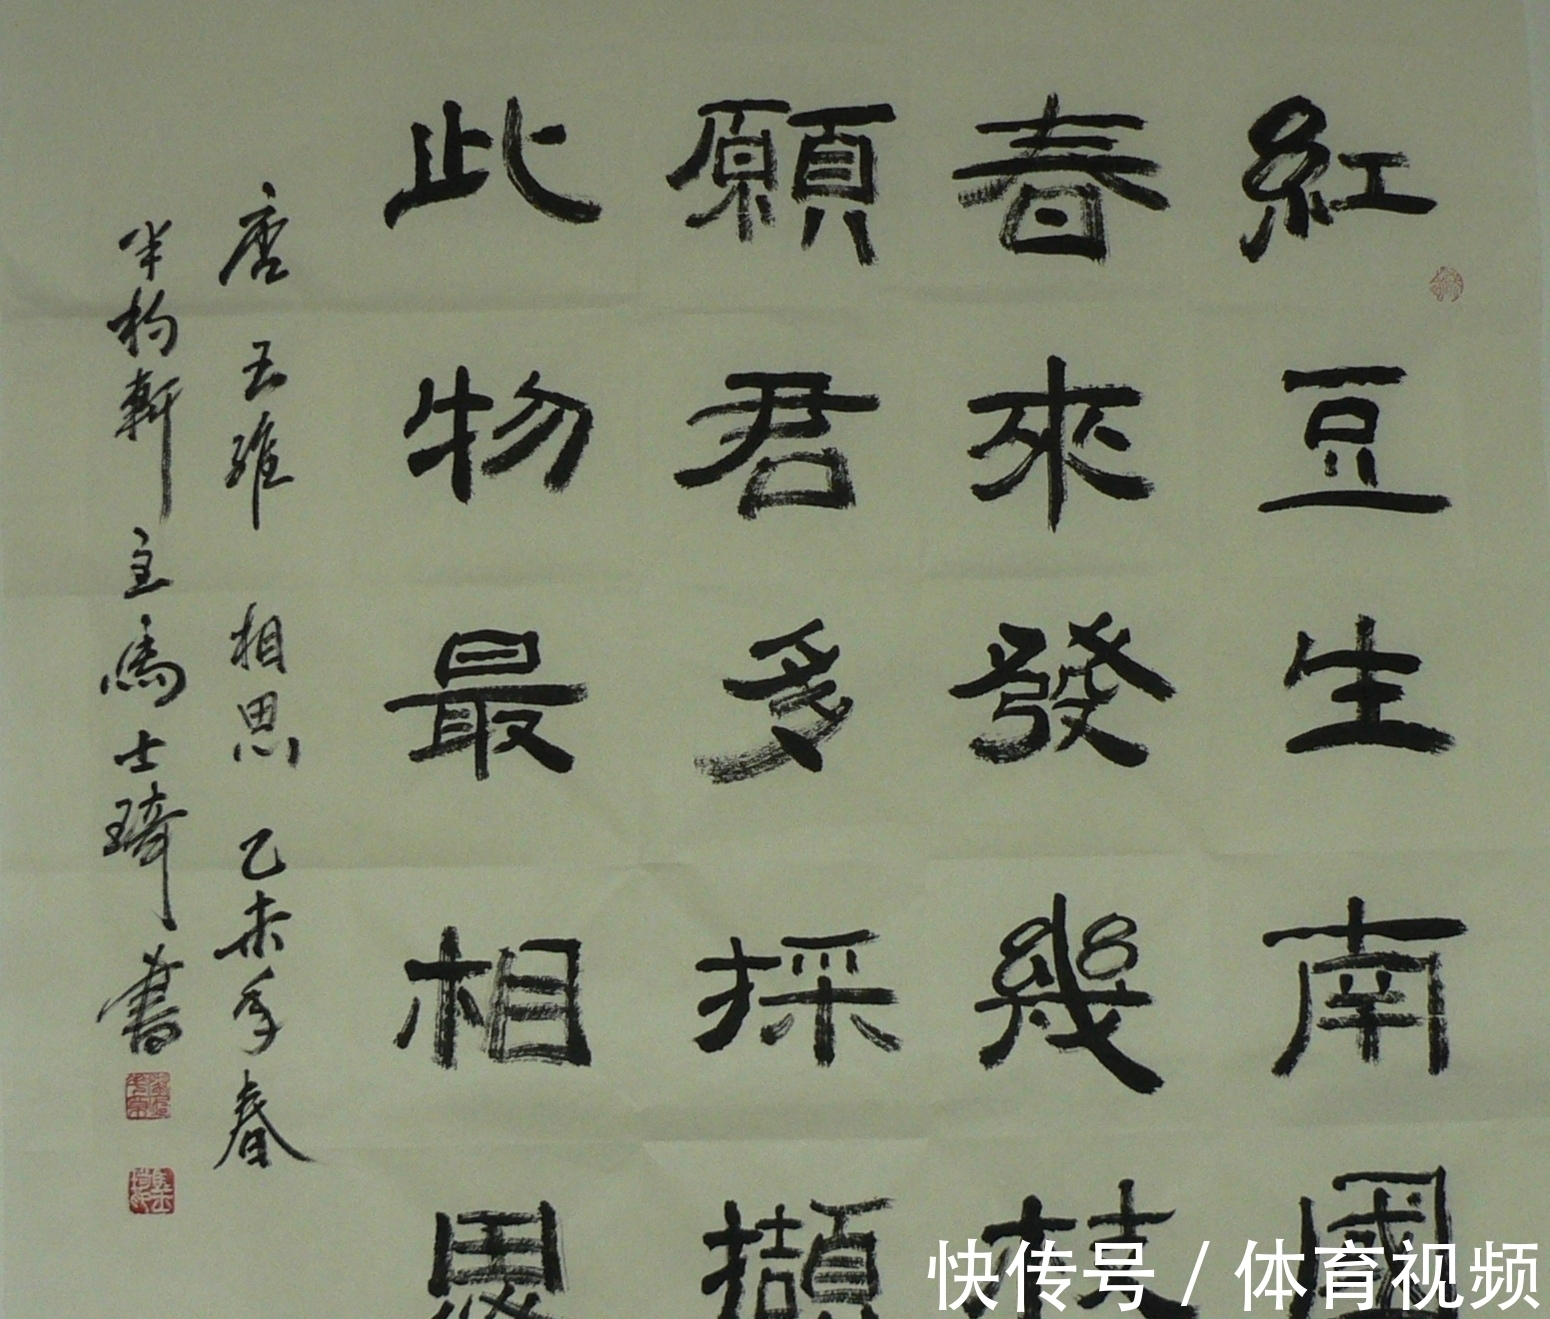 紅豆生南國
春來發幾枝
願君多採擷
此物最相思
唐 王維 相思 乙未年春
半杓軒主馬士琦書
快传号 / 体育视频